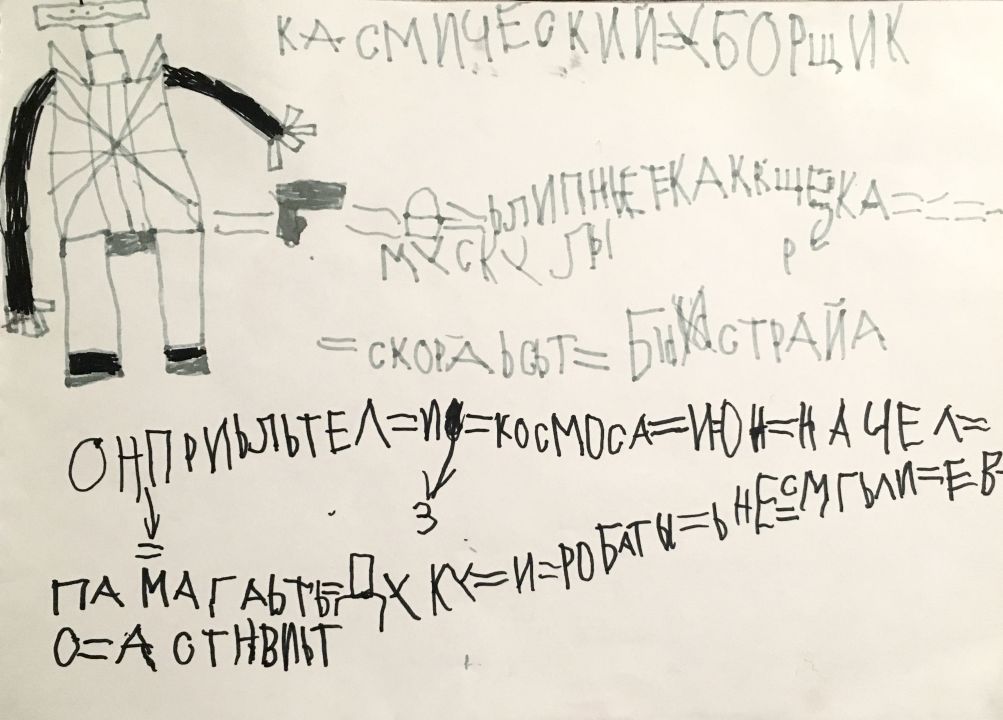 КАСМИЧЕСКИЙ=УБОРЩИК
ЬЛИПННЕТКАККЩЕЗКА====
МУСКУЛЫ ре
=СКОРАЬСЬТ= БИСТРАЙА
ОНПРИЬЛЬТЕЛ=И=КОСМОСА=ИОН=НАЧЕЛ=
З
ПАМАГАЬТЬ=ДУКУ=И=РОБАТЫ=ЬНЕ=СМГЬЛИ=ЕВ-
О=АСТНВИЬТ